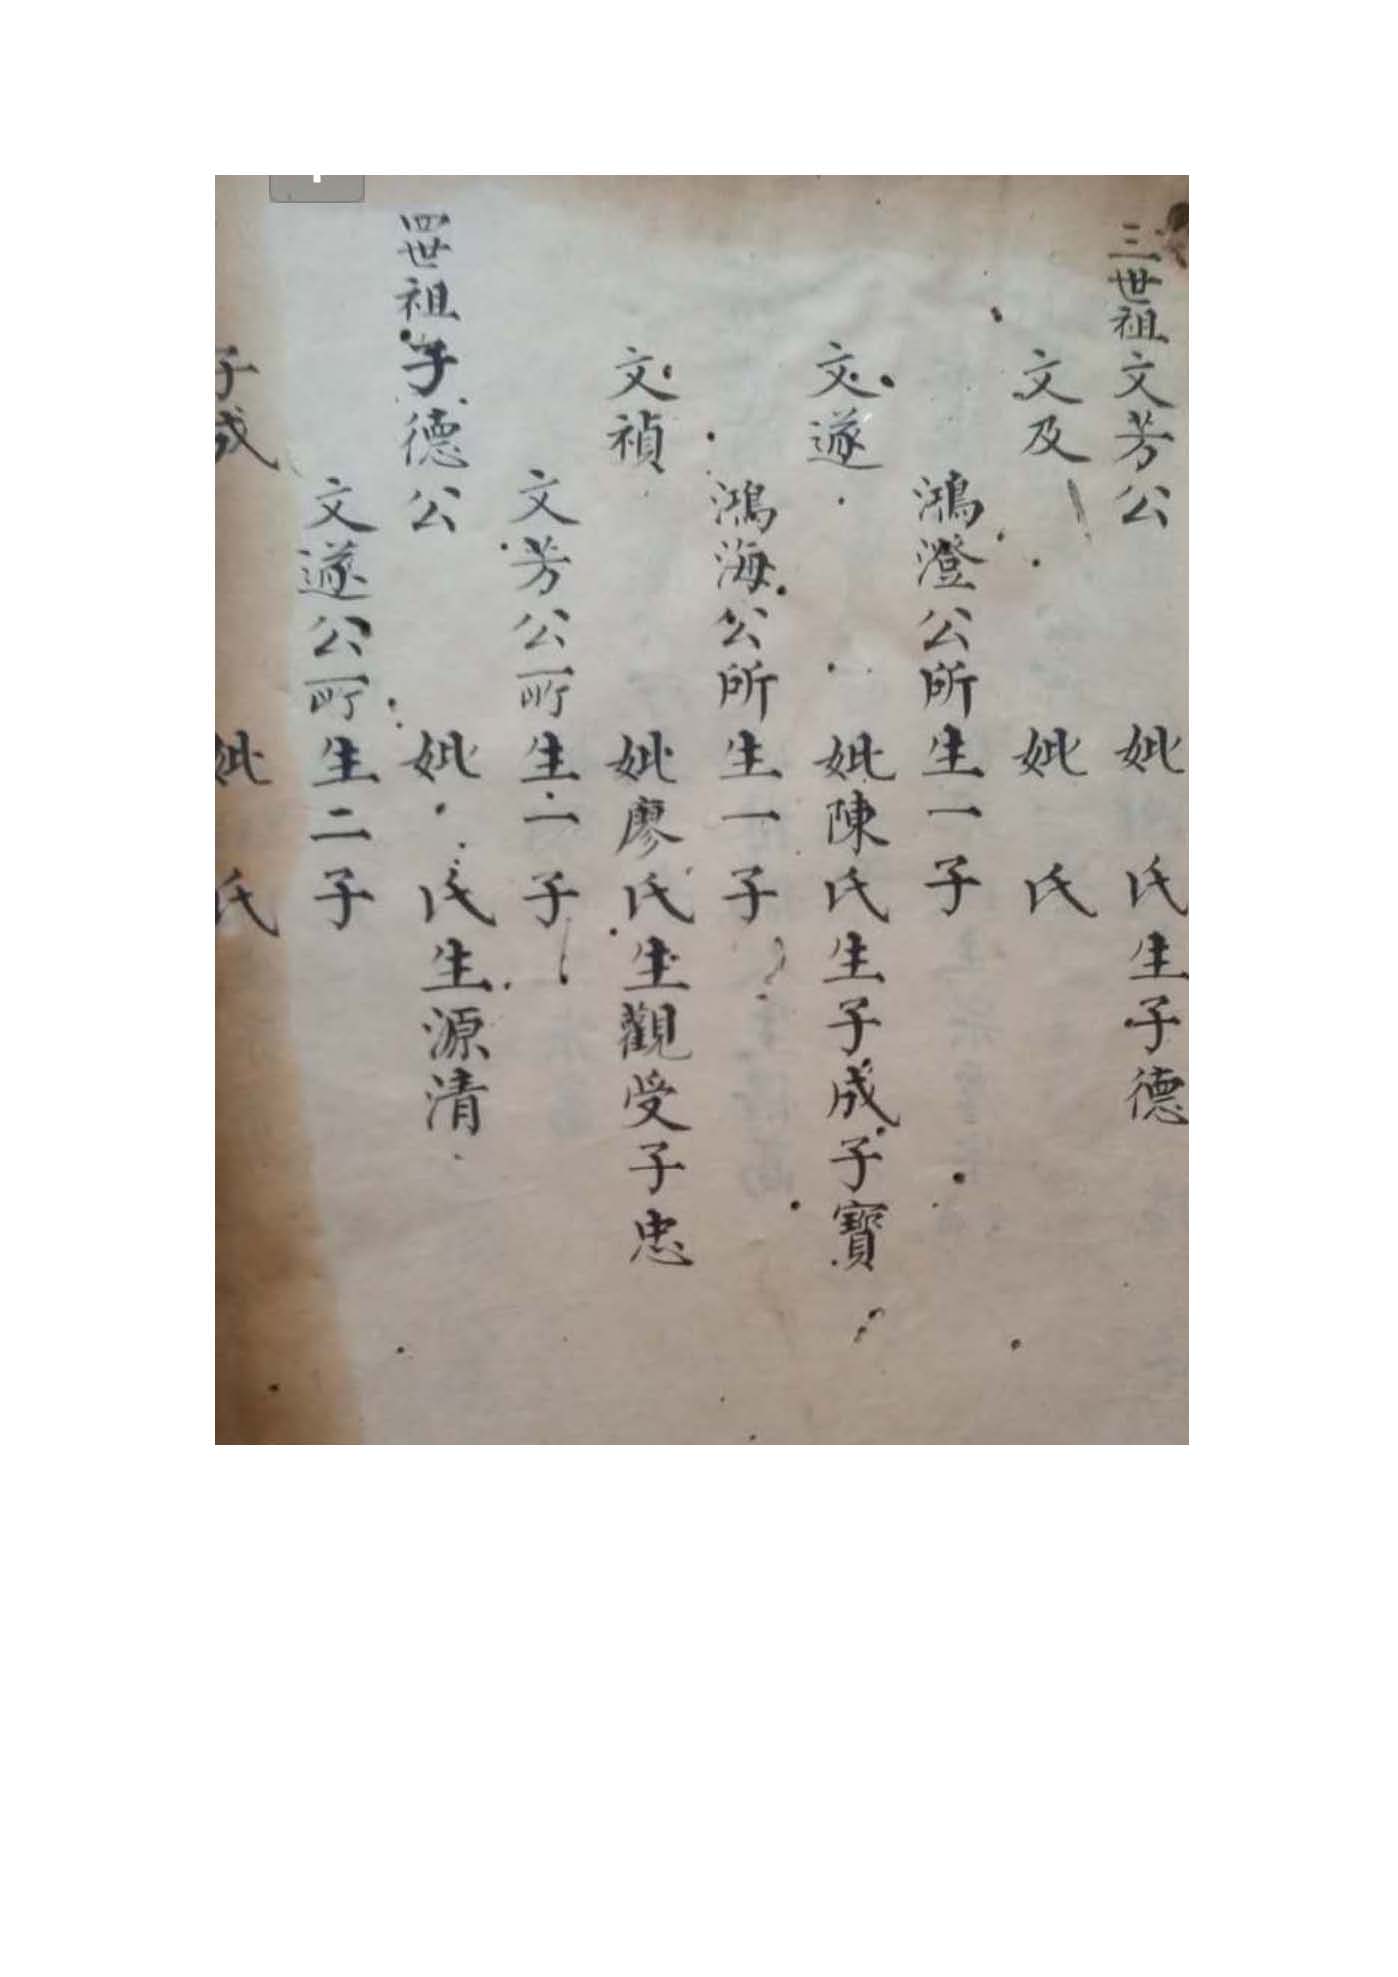 三世祖文芳公 妣 氏生子德
文及 妣 氏
鴻澄公所生一子
文遂 妣陳氏生子成子寶
鴻海公所生一子
文禎 妣廖氏生觀受子忠
文芳公所生一子
四世祖子德公 妣 氏生源清
文遂公所生二子
子成 妣 氏